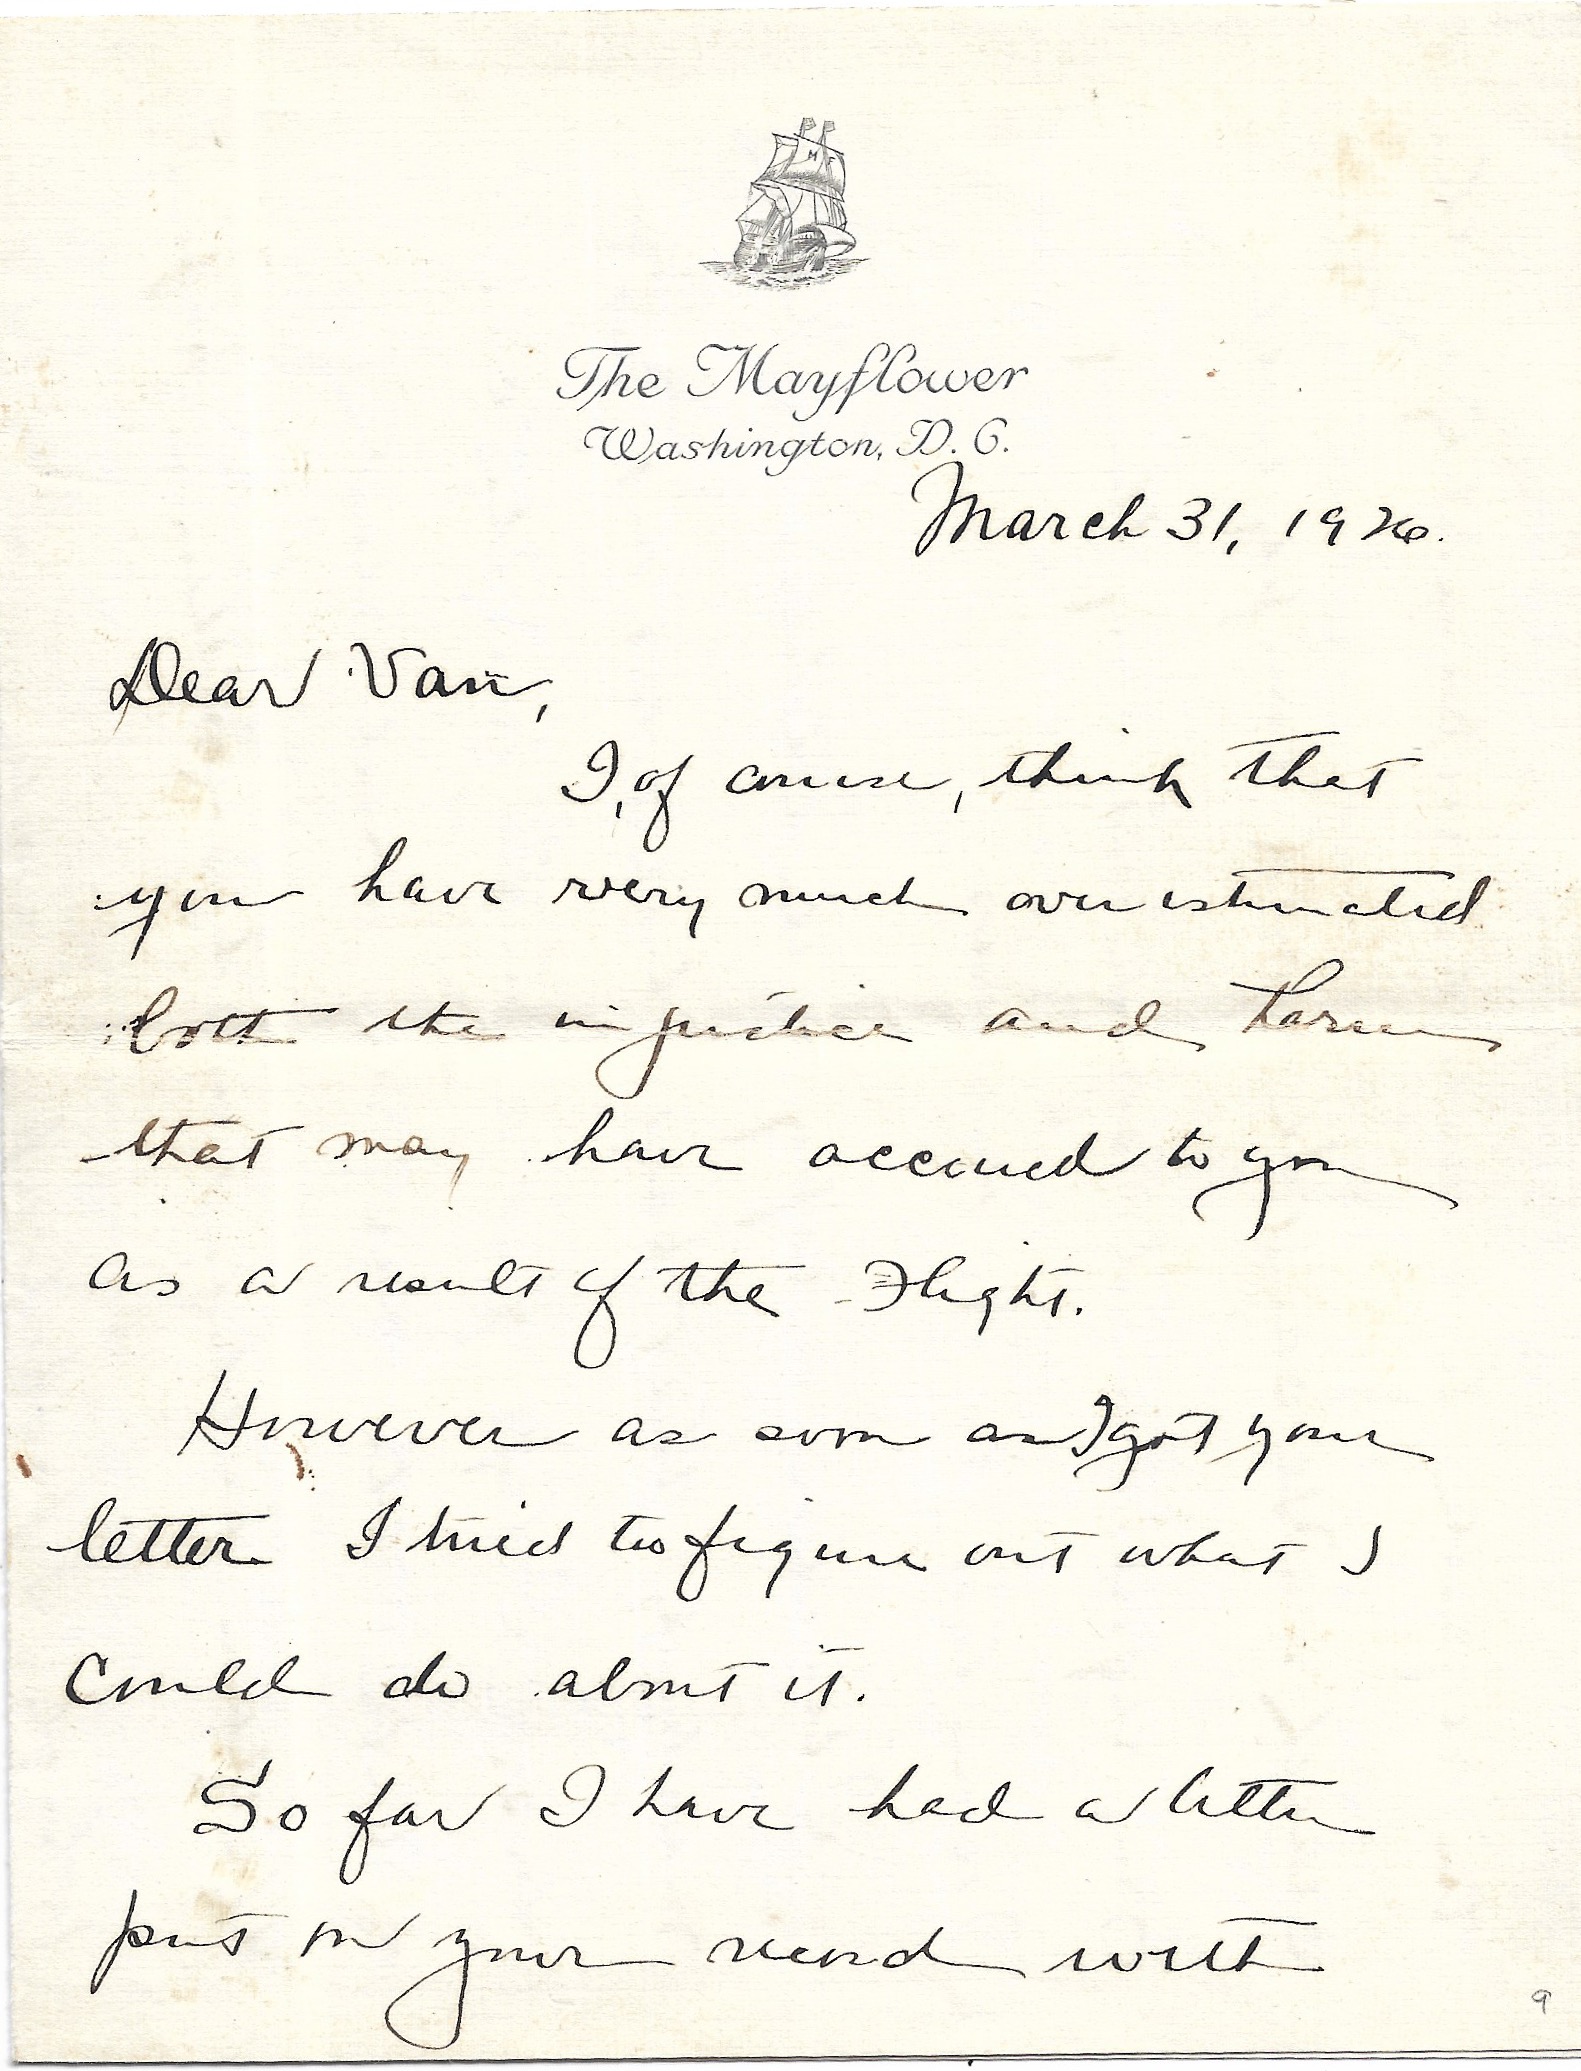 M F
The Mayflower
Washington, D. C.
March 31, 1926.
Dear Van,
I, of course, think that
you have very much over estimated
both the injustice and harm
that may have accrued to you
as a result of the Flight.
However as soon as I got your
letter I tried to figure out what I
could do about it.
So far I have had a letter
put on your record with
9